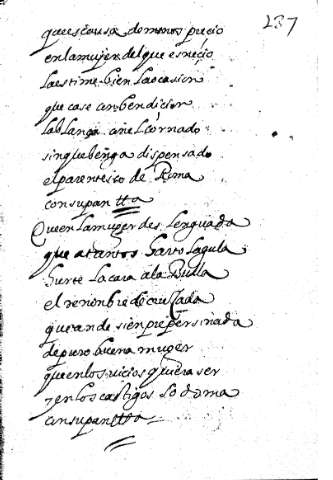 237
que es cousa de menos precio
en la mujer del que es necio
la estime bien la ocasion
que case con bendicion
la blanca con el cornado
sin que benga dispensado
el parentesco de Roma
con su panᵗᵗᵃ
Quen la muger des lenguada
que a tantos harto la gula
hurte la cara a la Bulla
el renonbre de cruzada
que ande sienpre persinada
de puro buena muger
quen los vicios quiera ser
y en los castigos Sodoma
con su panᵗᵗᵃ